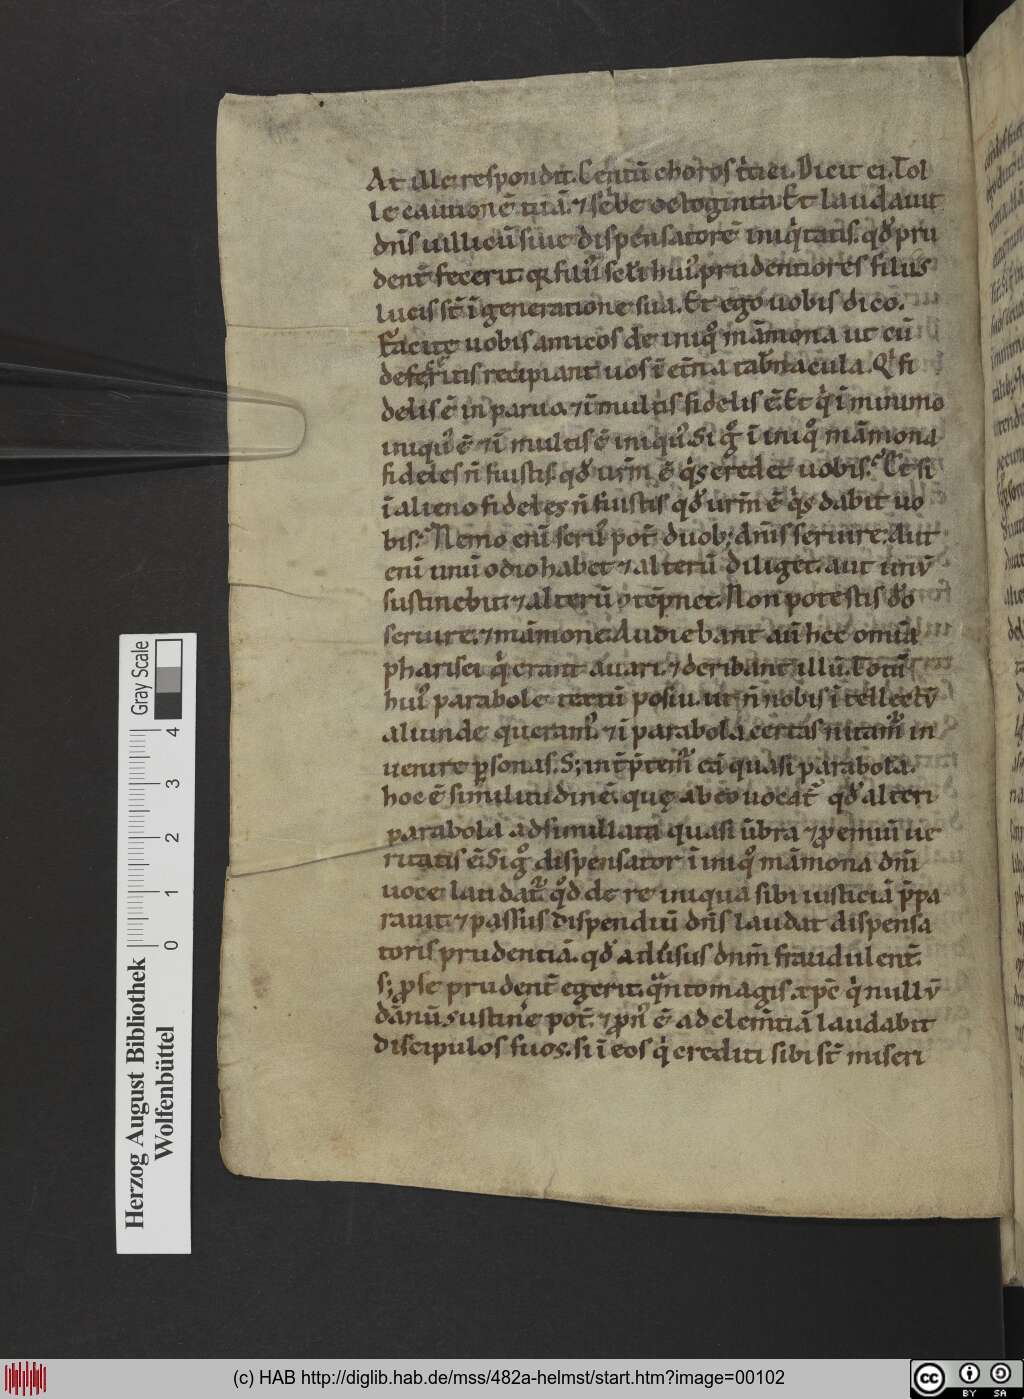 At ille respondit. Centū choros tritici. Dicit ei. Tol
le cautionē tuā. ⁊ scͥbe octoginta. Et laudauit
dn̄s uillicū siue dispensatorē iniqͥtatis. qd̓ pru
dent̄ fecerit. qꝛ filii hui᷒ prudentiores filiis
lucis st̄ ī generatione sua. Et ego uobis dico.
Facite uobis amicos de iniqͦ māmona ut cū
defeceritis recipiant uos ī et̄na tab̄nacula. Qͥ fi
delis ē in paruo. ⁊ ī multis fidelis ē. Et qͥ ī minimo
iniqu᷒ ē ⁊ ī multis ē iniqu᷒. Si gͦ ī iniqͦ māmona
fideles n̄ fuistis. qd̓ urm̄ ē qͥs credet uobis? Et si
ī alieno fideles n̄ fuistis qd̓ urm̄ ē qͥs dabit uo
bis? Nemo enī seru᷒ pot̄ duob; dn̄is seruire. Aut
enī unū odio habet ⁊ alterū diliget. aut unū
sustinebit. ⁊ alterū ꝯtēpnet. Non potestis dō
seruire. ⁊ māmone. Audiebant aū hec omīa
pharisei qͥ erant auari. ⁊ deribant illū.
hui᷒ parabole positū. ut n̄ nobis ītellectū
aliunde queram᷒. ⁊ ī parabola certas nitam̄ in
uenire ꝑsonas. S; int̄p̄tem̄ eā quasi parabola.
hoc ē similitudinē. quę ab eo uocat̄ qd̓ alteri
parabola adsimillata quasi ūbra ⁊ p̄emiū ue
ritatis ē. Si gͦ dispensator ī iniqͦ māmona dn̄i
uoce laudat̄. qd̓ de re iniqua sibi iusticiā p̄pa
rauit. ⁊ passus dispendiū dn̄s laudat dispensa
toris prudentiā. qd̓ aduersus dnm̄ fraudulent̄.
s; ꝓ se prudent̄ egerit. qͣnto magis xp̄c qͥ nullū
dānū sustinere pot̄. ⁊ ꝓn᷒ ē ad clem̄tiā laudabit
discipulos suos. si ī eos qͥ credituri sibi st̄ miseri
Herzog August Bibliothek
Wolfenbüttel
Gray Scale
0 1 2 3 4
(c) HAB http://diglib.hab.de/mss/482a-helmst/start.htm?image=00102
cc BY SA